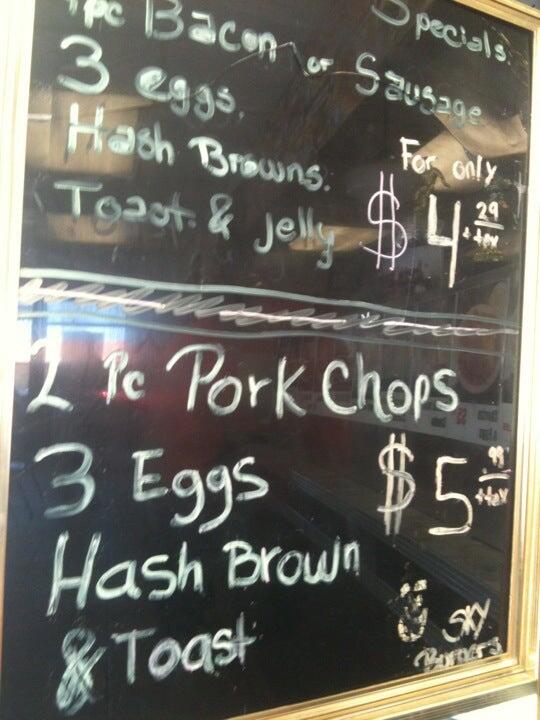 Specials.
pc Bacon or Sausage
3 eggs.
Hash Browns. For only
Toast & Jelly $4 29 +tax
2 Pc Pork Chops
3 Eggs $5 .99 +tax
Hash Brown
& Toast SKY
Burgers